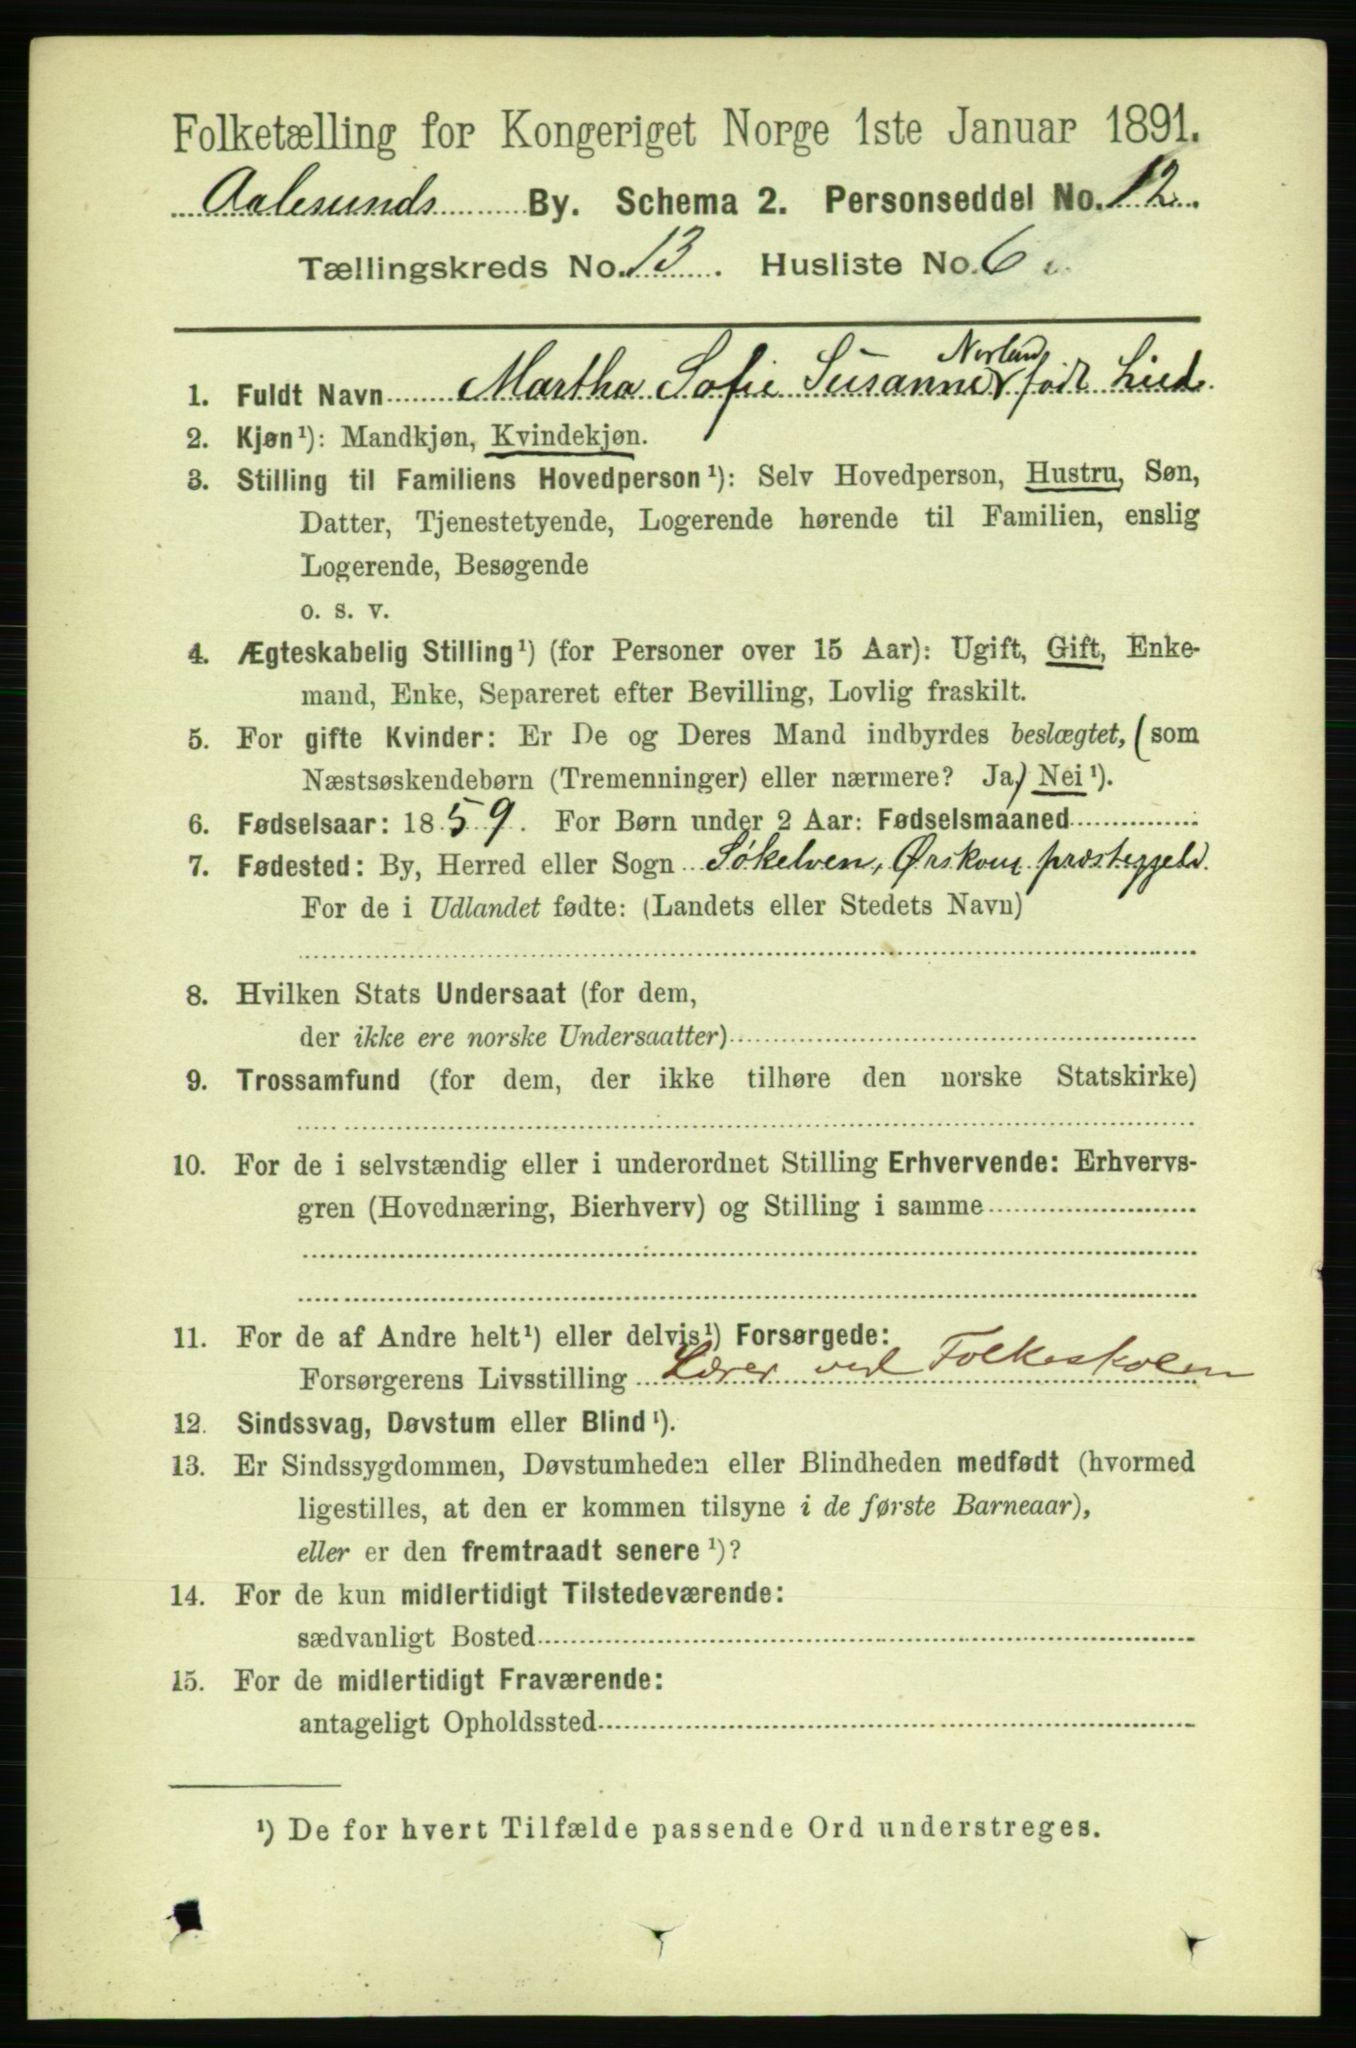 Folketælling for Kongeriget Norge 1ste Januar 1891.
Aalesunds By. Schema 2. Personseddel No. 12.
Tællingskreds No. 13. Husliste No. 6
Norlund
1. Fuldt Navn Martha Sofie Susanne født Lied.
2. Kjøn¹): Mandkjøn, Kvindekjøn.
3. Stilling til Familiens Hovedperson¹): Selv Hovedperson, Hustru, Søn,
Datter, Tjenestetyende, Logerende hørende til Familien, enslig
Logerende, Besøgende
o. s. v.
4. Ægteskabelig Stilling¹) (for Personer over 15 Aar): Ugift, Gift, Enke-
mand, Enke, Separeret efter Bevilling, Lovlig fraskilt.
5. For gifte Kvinder: Er De og Deres Mand indbyrdes beslægtet, (som
Næstsøskendebørn (Tremenninger) eller nærmere? Ja) Nei¹).
6. Fødselsaar: 1859. For Børn under 2 Aar: Fødselsmaaned
7. Fødested: By, Herred eller Sogn Søkelven, Ørskoug præsteggeld.
For de i Udlandet fødte: (Landets eller Stedets Navn)
8. Hvilken Stats Undersaat (for dem,
der ikke ere norske Undersaatter)
9. Trossamfund (for dem, der ikke tilhøre den norske Statskirke)
10. For de i selvstændig eller i underordnet Stilling Erhvervende: Erhvervs-
gren (Hovednæring, Bierhverv) og Stilling i samme
11. For de af Andre helt¹) eller delvis¹) Forsørgede:
Forsørgerens Livsstilling Lærer ved Folkeskolen
12. Sindssvag, Døvstum eller Blind¹).
13. Er Sindssygdommen, Døvstumheden eller Blindheden medfødt (hvormed
ligestilles, at den er kommen tilsyne i de første Barneaar),
eller er den fremtraadt senere¹)?
14. For de kun midlertidigt Tilstedeværende:
sædvanligt Bosted
15. For de midlertidigt Fraværende:
antageligt Opholdssted
¹) De for hvert Tilfælde passende Ord understreges.